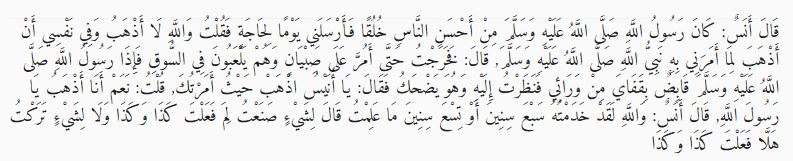 قَالَ أَنَسٌ: كَانَ رَسُولُ اللَّهِ صَلَّى اللَّهُ عَلَيْهِ وَسَلَّمَ مِنْ أَحْسَنِ النَّاسِ خُلُقًا فَأَرْسَلَنِي يَوْمًا لِحَاجَةٍ فَقُلْتُ وَاللَّهِ لَا أَذْهَبُ وَفِي نَفْسِي أَنْ
أَذْهَبَ لِمَا أَمَرَنِي بِهِ نَبِيُّ اللَّهِ صَلَّى اللَّهُ عَلَيْهِ وَسَلَّمَ, قَالَ: فَخَرَجْتُ حَتَّى أَمُرَّ عَلَى صِبْيَانٍ وَهُمْ يَلْعَبُونَ فِي السُّوقِ فَإِذَا رَسُولُ اللَّهِ صَلَّى
اللَّهُ عَلَيْهِ وَسَلَّمَ قَابِضٌ بِقَفَايَ مِنْ وَرَائِي فَنَظَرْتُ إِلَيْهِ وَهُوَ يَضْحَكُ فَقَالَ: يَا أُنَيْسُ اذْهَبْ حَيْثُ أَمَرْتُكَ, قُلْتُ: نَعَمْ أَنَا أَذْهَبُ يَا
رَسُولَ اللَّهِ, قَالَ أَنَسٌ: وَاللَّهِ لَقَدْ خَدَمْتُهُ سَبْعَ سِنِينَ أَوْ تِسْعَ سِنِينَ مَا عَلِمْتُ قَالَ لِشَيْءٍ صَنَعْتُ لِمَ فَعَلْتَ كَذَا وَكَذَا وَلَا لِشَيْءٍ تَرَكْتُ
هَلَّا فَعَلْتَ كَذَا وَكَذَا